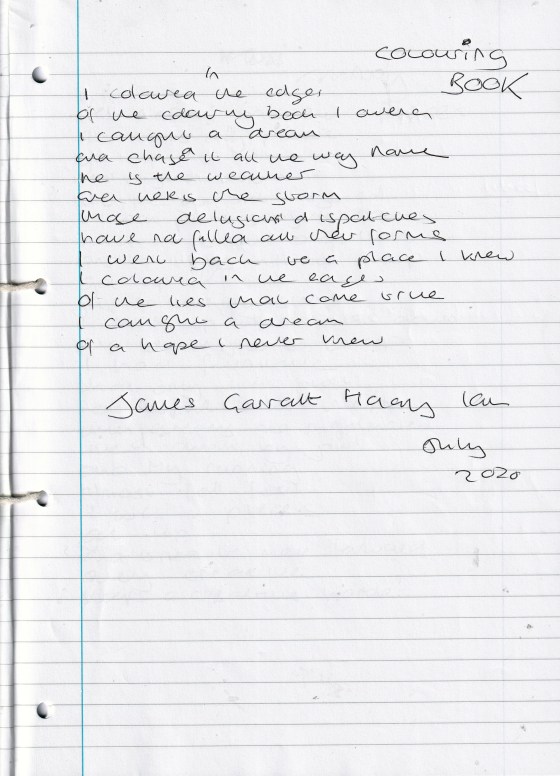 COLOURING
BOOK
in
I coloured the edges
of the colouring book I owned
I caught a dream
and chased it all the way home
he is the weather
and he is the storm
those delusional dispatches
have no filled all their forms
I went back to a place I knew
I coloured in the edges
of the lies that come true
I caught a dream
of a hope I never knew
James Garratt Ian
only
2020